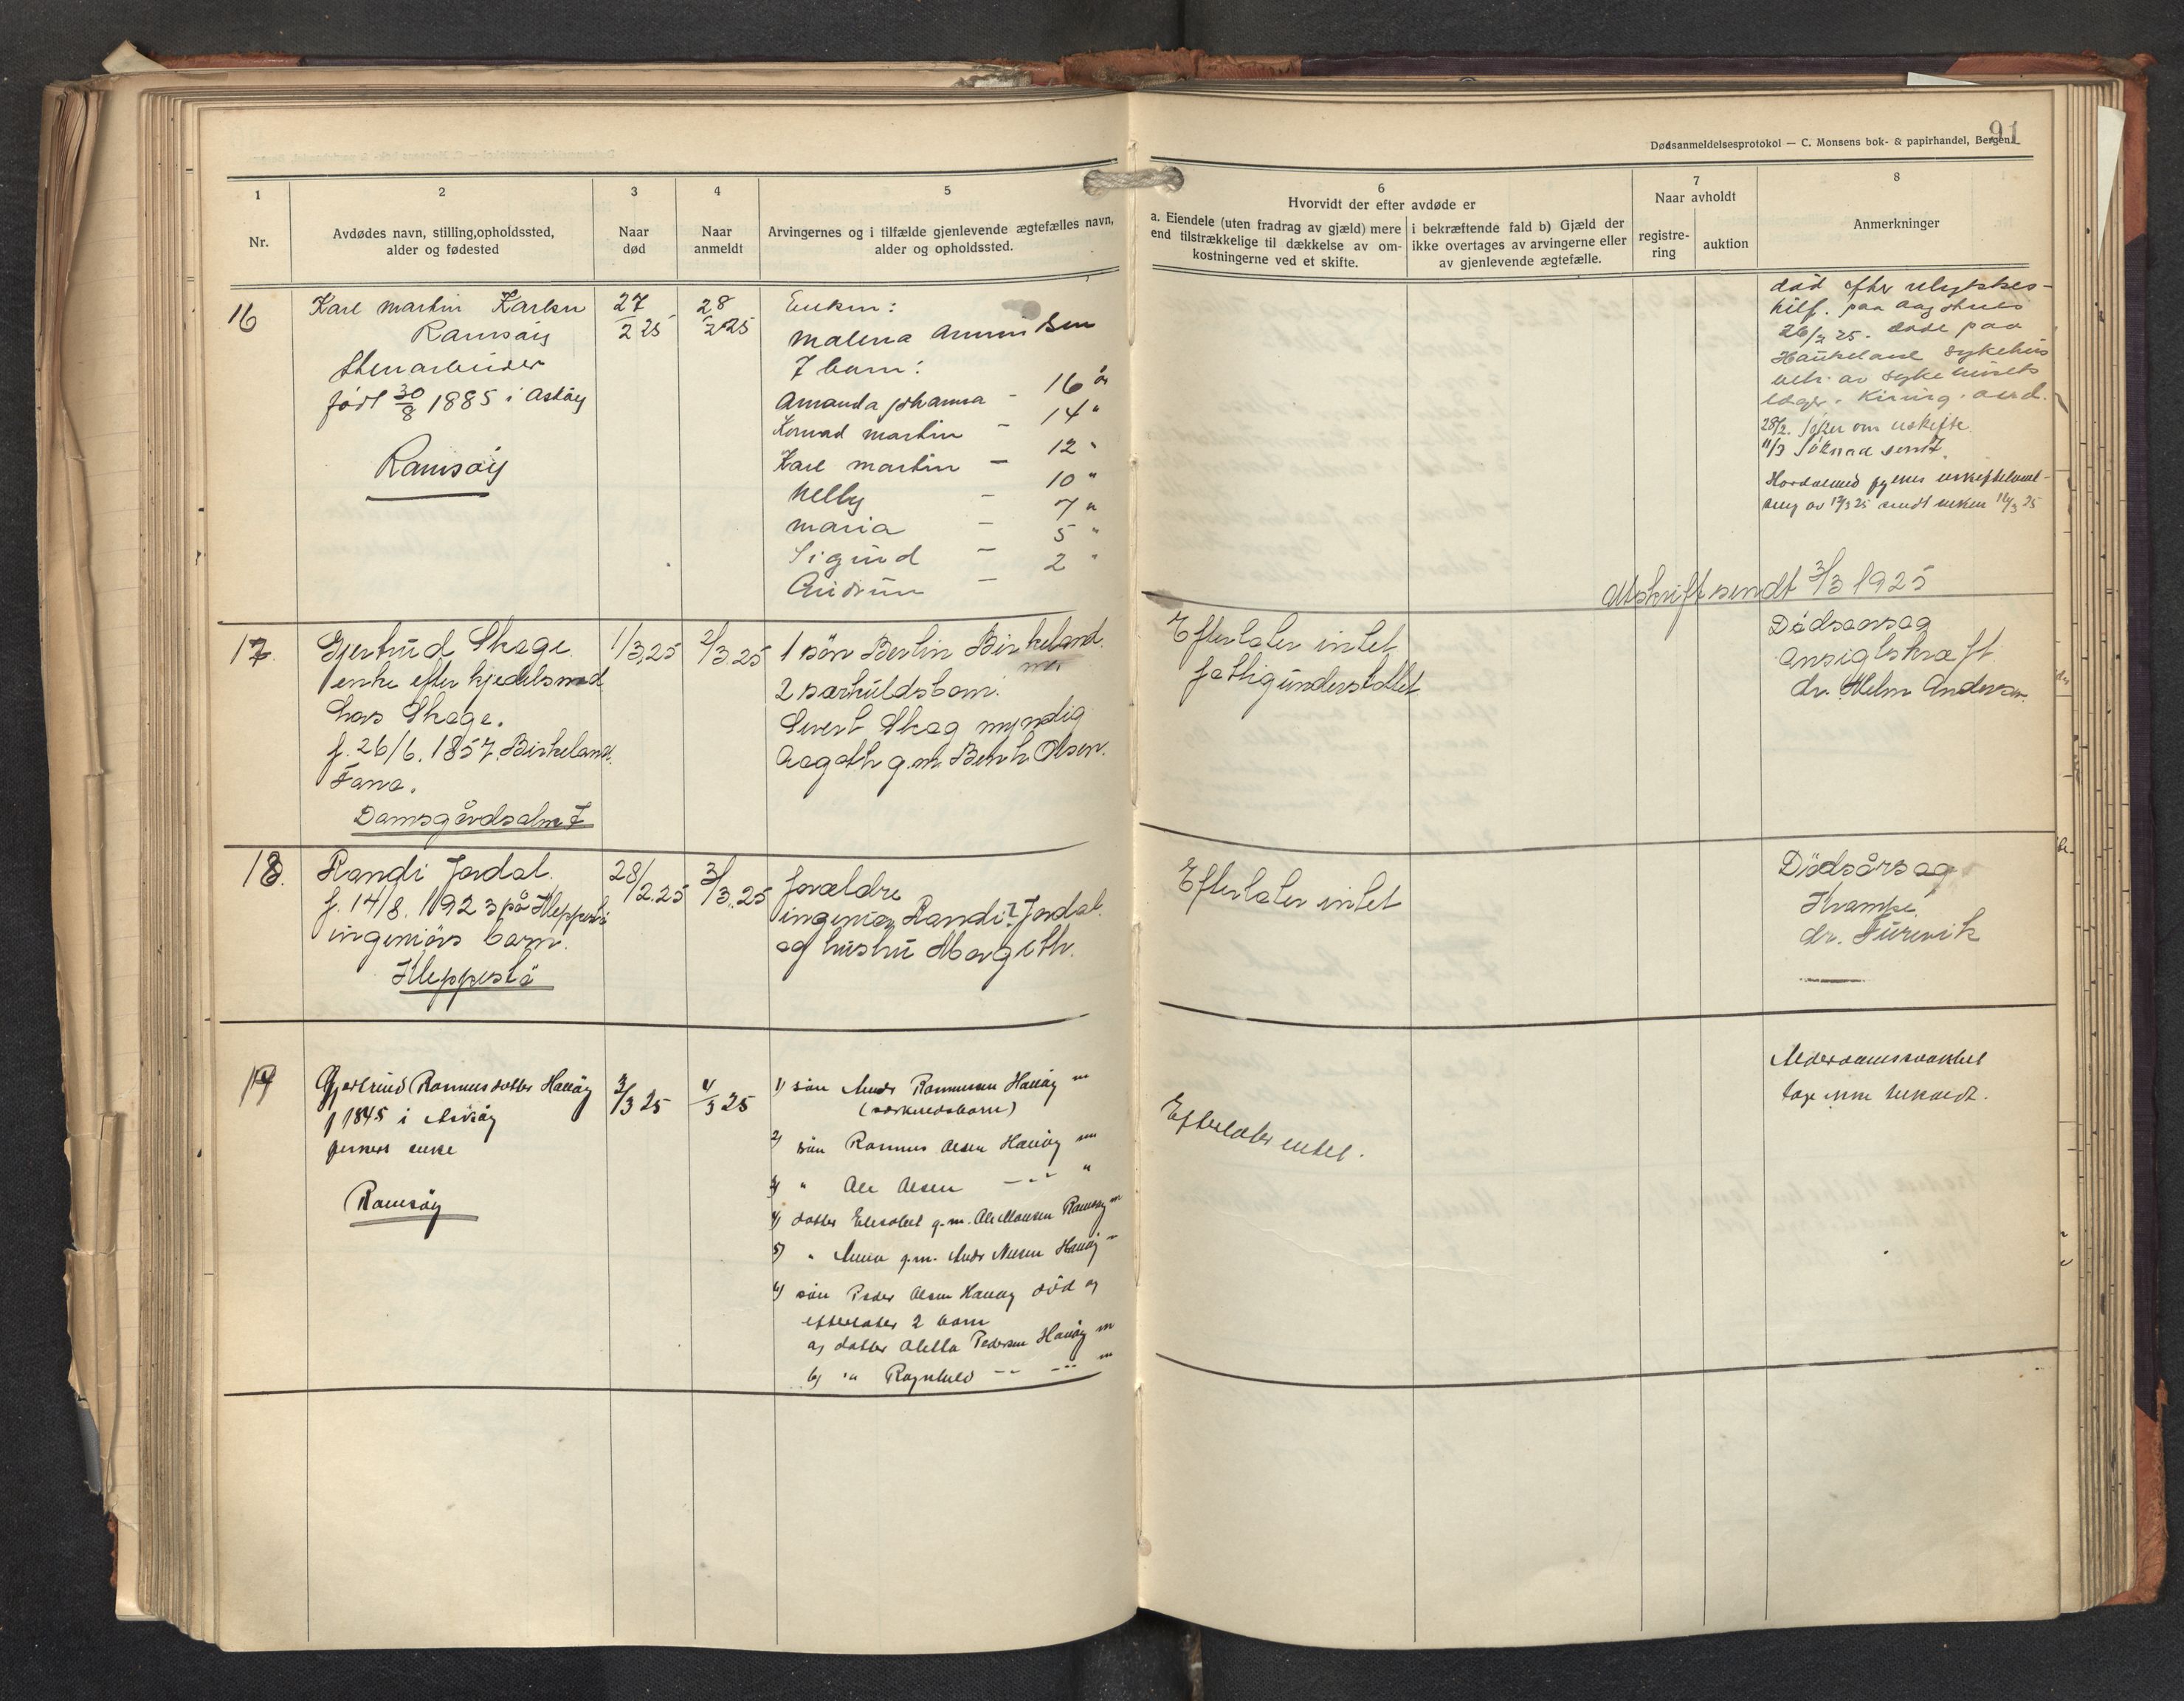 91
Dødsanmeldelsesprotokol — C. Monsens bok- & papirhandel, Bergen.
1
Nr.
2
Avdødes navn, stilling, opholdssted,
alder og fødested
3
Naar
død
4
Naar
anmeldt
5
Arvingernes og i tilfælde gjenlevende ægtefælles navn,
alder og opholdssted.
6
Hvorvidt der efter avdøde er
a. Eiendele (uten fradrag av gjæld) mere
end tilstrækkelige til dækkelse av om-
kostningerne ved et skifte.
i bekræftende fald b) Gjæld der
ikke overtages av arvingerne eller
av gjenlevende ægtefælle.
7
Naar avholdt
registre-
ring
auktion
8
Anmerkninger
16
Karl Martin Karlsen
Ramsöy
Stenarbeider
født 30/8 1885 i Asköy
Ramsöy
27/2 25
28/2 25
Enken:
Malena
7 barn:
Amanda Johanna - 16 år
Konrad Martin - 14 "
Karl Martin - 12 "
Nelly - 10 "
Maria - 7 "
Sigurd - 5 "
Gudrun - 2 "
død efter ulykkes-
tilf. paa
26/2 25. døde paa
Haukeland sykehus
av sykehusets
læge. Kirurg. avd.
28/2. søker om uskifte
11/3 Söknad sendt
av 12/3 25 sendt enken 16/3 25
Avskrift sendt 3/3 1925
17.
Gjertrud Skage.
enke efter kjedelsmed
Lars Skage.
f. 26/6. 1857. Birkeland.
Fana.
Damsgårdsalm 7
1/3.25
2/3.25
1 søn Berlin Birkeland.
2 særkuldsbarn.
Severt Skag myndig
Aagoth g.m. Olsen.
Efterlater intet
fattigunderstøttet
Dødsaarsag
Ansigtskræft
dr. Helm Andersen.
18.
Randi Jordal.
f. 14/8. 1923 på Kleppestö
ingeniørs barn.
Kleppestö
28/2.25
3/3.25
forældre
ingeniør Randi? Jordal.
og hustru Margith.
Efterlater intet
Dödsårsag
Krampe.
dr. Furevik
19
Gjertrud Rasmusdatter Hanöy
f 1845 i Asköy
enke
Ramsöy
3/3 25
4/3 25
1) sön Anders Rasmussen Hanöy m
(særkuldsbarn)
2) sön Rasmus Olsen Hanöy m
3) " Ole Olsen - " - "
4) datter Elisabet g.m. Ole Monsen Ramsöy m
5) " Anna g.m. Andr Nilsen Hanöy "
6) sön Peder Olsen Hanöy död og
efterlater 2 barn
a) datter Oletta Pedersen Hanöy m
b) " Ragnhild - " - m
Efterlater intet.
Alderdomssvakhet
læge ikke tilkaldt.